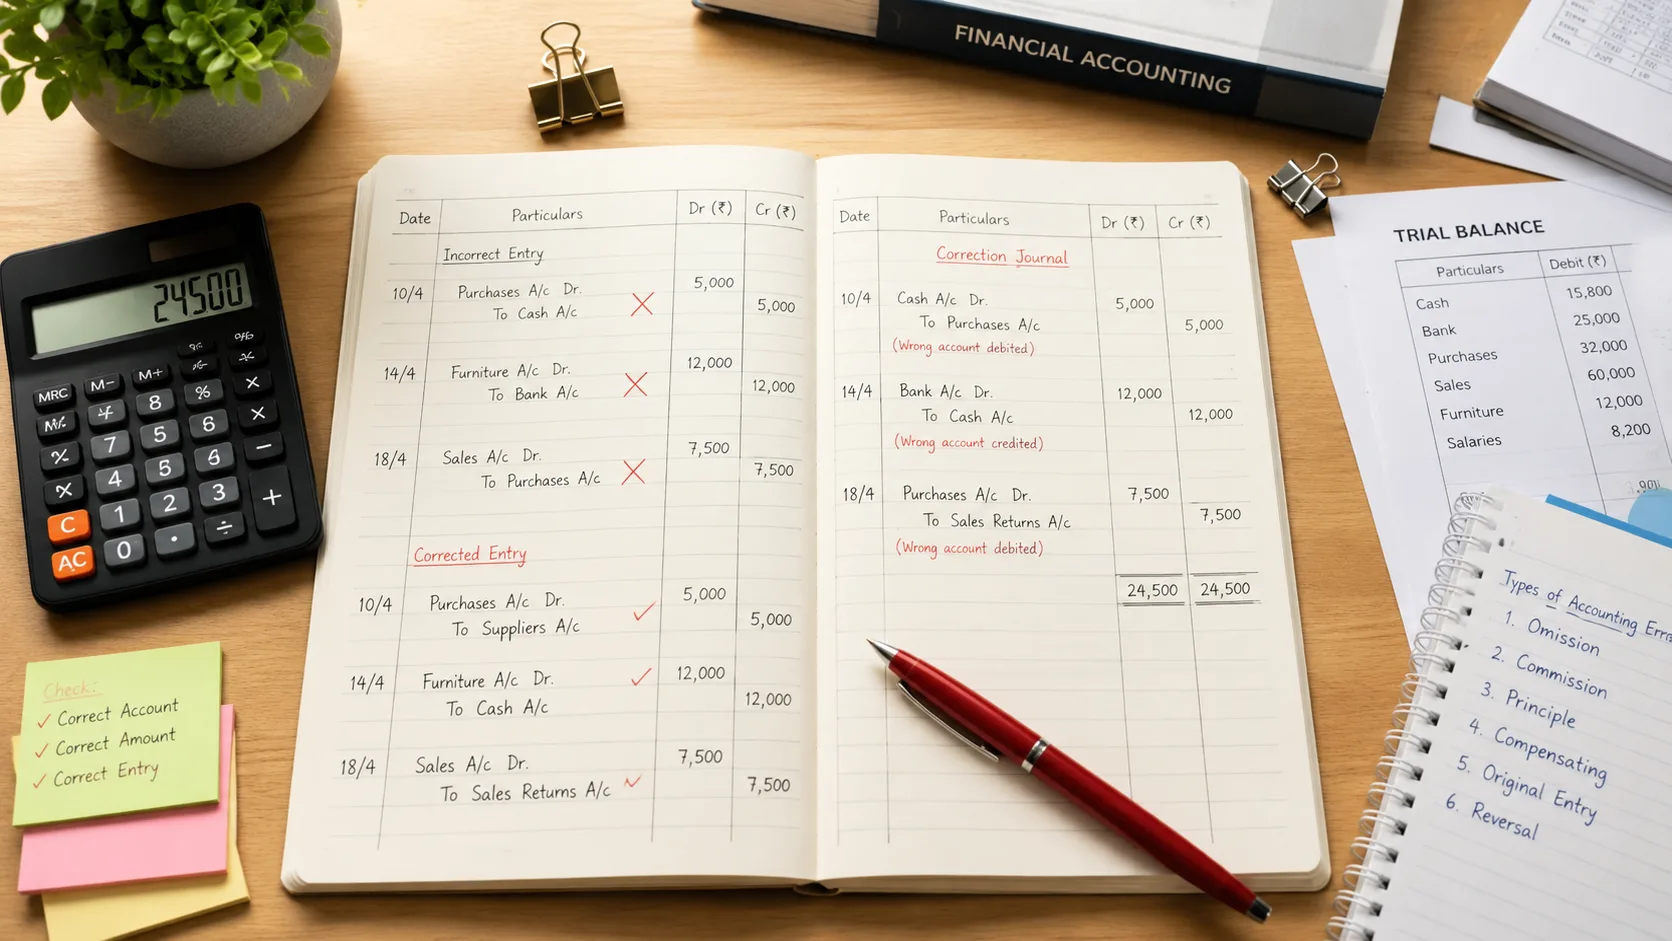 FINANCIAL ACCOUNTING
24500
MRC M- M+
8 % ×
7 5 6 ×
% 4 5 6 −
C 1 2 3 +
AC 0 · ÷
Check:
✓ Correct Account
✓ Correct Amount
✓ Correct Entry
Date Particulars Dr (₹) Cr (₹)
Incorrect Entry
10/4 Purchases A/c Dr. 5,000
To Cash A/c 5,000
14/4 Furniture A/c Dr. 12,000
To Bank A/c 12,000
18/4 Sales A/c Dr. 7,500
To Purchases A/c 7,500
Corrected Entry
10/4 Purchases A/c Dr. 5,000
To Suppliers A/c 5,000
14/4 Furniture A/c Dr. 12,000
To Cash A/c 12,000
18/4 Sales A/c Dr. 7,500
To Sales Returns A/c 7,500
Date Particulars Dr (₹) Cr (₹)
Correction Journal
10/4 Cash A/c Dr. 5,000
To Purchases A/c 5,000
(Wrong account debited)
14/4 Bank A/c Dr. 12,000
To Cash A/c 12,000
(Wrong account credited)
18/4 Purchases A/c Dr. 7,500
To Sales Returns A/c 7,500
(Wrong account debited)
24,500 24,500
TRIAL BALANCE
Particulars Debit (₹)
Cash 15,800
Bank 25,000
Purchases 32,000
Sales 60,000
Furniture 12,000
Salaries 8,200
Types of Accounting
1. Omission
2. Commission
3. Principle
4. Compensating
5. Original Entry
6. Reversal